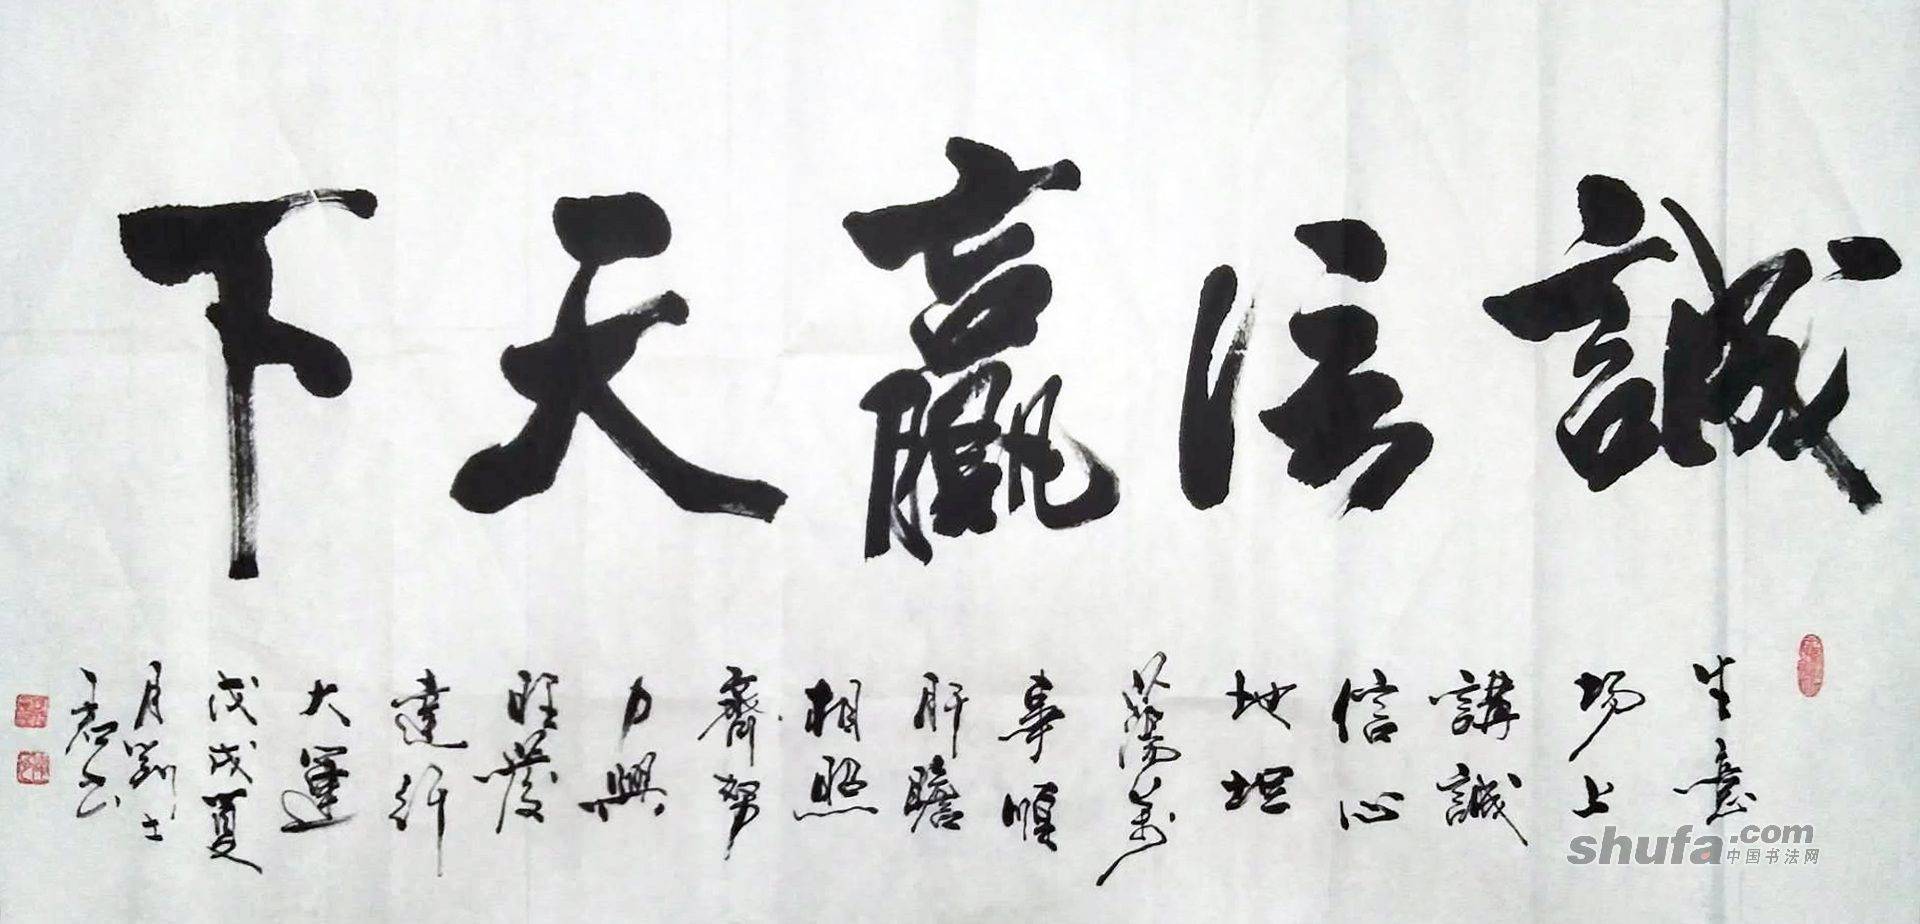 誠信贏天下
生意
场上
講誠
信心
地坦
蕩萬
事順
肝膽
相照
齊努
力興
旺發
達行
大運
戊戌夏
月劉士
君书
shufa.com
中国书法网